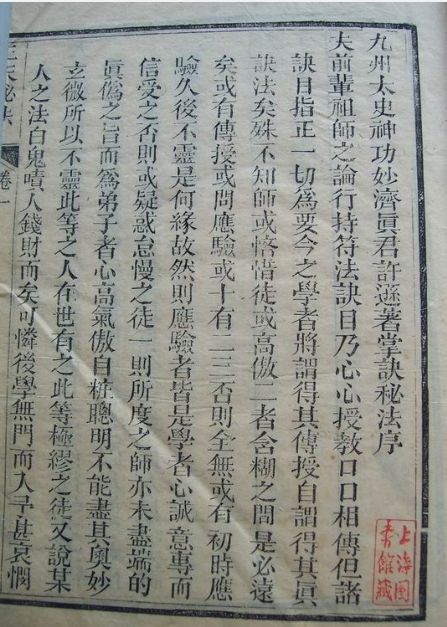 九州太史神功妙濟眞君許遜著掌訣秘法序
夫前輩祖師之論行持符法訣目乃心心授敎口口相傳但諸
訣目指正一切爲要今之學者將謂得其傳授自謂得其眞
訣法矣殊不知師或悋惜徒或高傲二者含糊之間是必遠
矣或有傳授或問應驗或十有二三否則全無或有初時應
驗久後不靈是何緣故然則應驗者皆是學者心誠意專而
信受之否則或疑惑怠慢之徒一則所度之師亦未盡端的
眞僞之旨而爲弟子者心高氣傲自粧聰明不能盡其奧妙
玄微所以不靈此等之人在世有之此等極繆之徒又說某
人之法白鬼嘖人錢財而矣可憐後學無門而入予甚哀憫
秘法
卷一
上海圖
書館藏